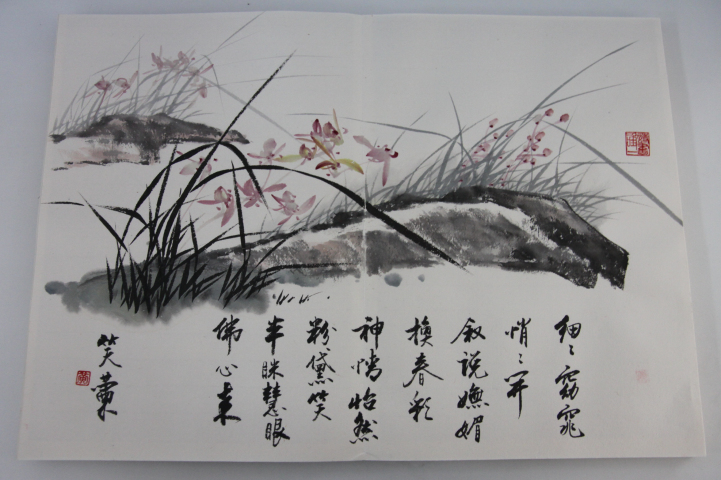 细〻窈窕
悄〻开
叙说嫵媚
换春彩
神情怡然
粉黛笑
半眯慧眼
佛心来
笑蘭